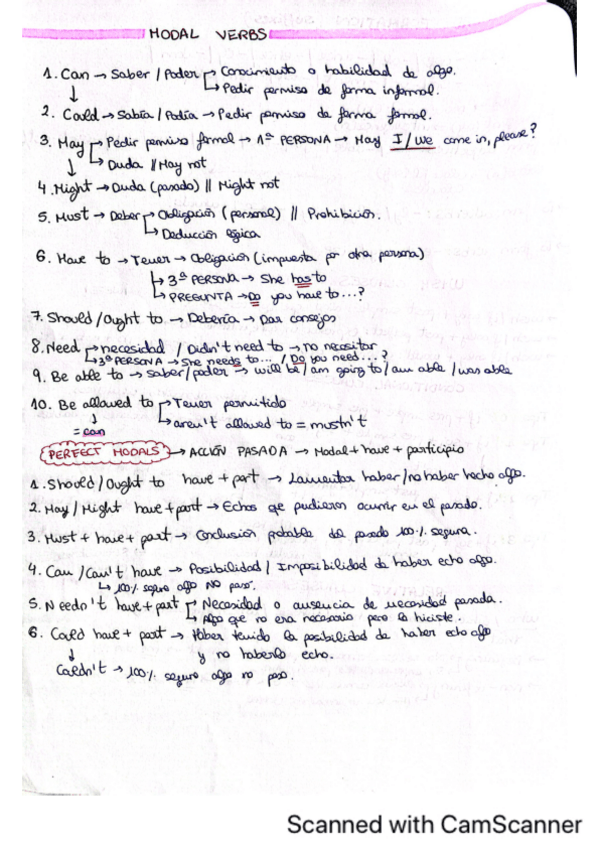 MODAL VERBS
1. Can → Saber / Poder → Conocimiento o habilidad de algo.
↓ → Pedir permiso de forma informal.
2. Could → Sabía / Podía → Pedir permiso de forma formal.
3. May → Pedir permiso formal → 1ª PERSONA → May I / We come in, please?
↓ → Duda // May not
4. Might → Duda (pasado) // Might not
5. Must → Deber → Obligación (personal) // Prohibición.
→ Deducción lógica
6. Have to → Tener → Obligación (impuesta por otra persona)
→ 3ª PERSONA → She has to
→ PREGUNTA → Do you have to...?
7. Should / Ought to → Debería → Dar consejos
8. Need → necesidad / Didn't need to → no necesitar
→ 3ª PERSONA → She needs to... / Do you need...?
9. Be able to → saber/poder → will be / am going to / am able / was able
10. Be allowed to → Tener permitido
↓ → aren't allowed to = mustn't
= can
PERFECT MODALS → ACCIÓN PASADA → Modal + have + participio
1. Should / Ought to have + part → Lamentar haber / no haber hecho algo.
2. May / Might have + part → Echos que pudieron ocurrir en el pasado.
3. Must + have + part → Conclusión probable del pasado 100% segura.
4. Can / Can't have → Posibilidad / Imposibilidad de haber echo algo.
→ 100% seguro algo NO paso.
5. Needn't have + part → Necesidad o ausencia de necesidad pasada.
→ Algo que no era necesario pero lo hiciste.
6. Could have + part → Haber tenido la posibilidad de haber echo algo
↓ y no haberlo echo.
Couldn't → 100% seguro algo no paso.
Scanned with CamScanner